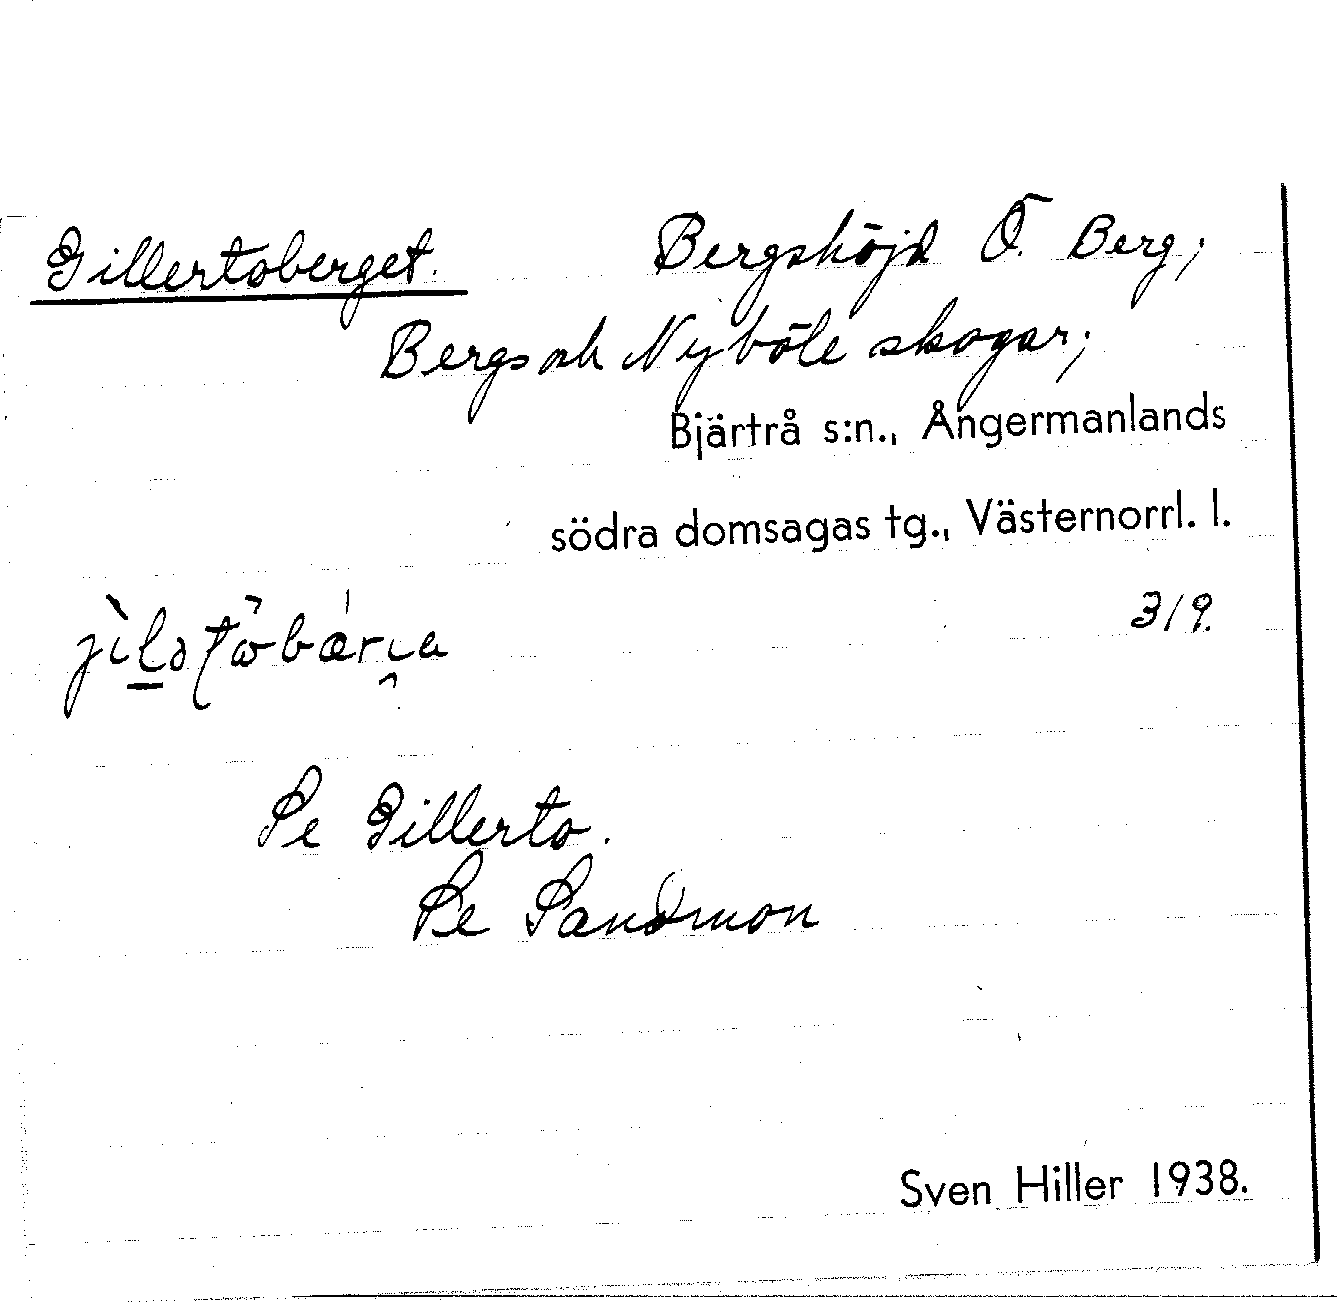 Gillertoberget. Bergshöjd Ö. Berg;
Bergs och Nyböle skogar;
Bjärtrå s:n., Ångermanlands
södra domsagas tg., Västernorrl. l.
319.
Se Gillerto.
Se Sandmon
Sven Hiller 1938.